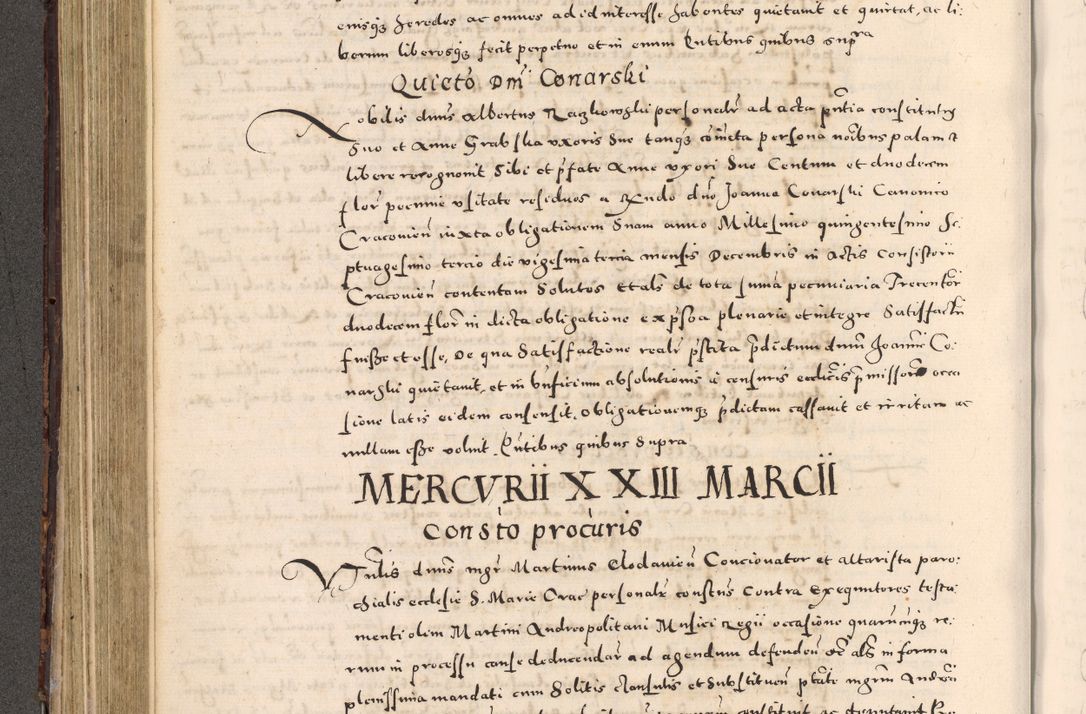 eiusq̃ heredes ac omnes ad id interesse habentes quietauit et quittat, ac li:
berum liberosq̃ fecit perpetuo et in eum P̃ntibus quibus supra
Quieto Dni Conarski
Nobilis dnus Albertus Raczkowskii personalr ad acta pñtia constitutus
suo et Anne Grabska vxoris sue tanq̃ coniuncta persona noibus palam et
libere recognouit sibi et p̃fate Anne vxori sue Centum et duodecim
flor pecunie vsitate residuos a Rndo dno Joanne Conarskii Canonico
Cracouieñ iuxta obligationem suam anno Millesimo quingentesimo Se
ptuagesimo tercio die vigesima tercia mensis Decembris in Actis Consistorii
Cracouieñ contentam Solutos Et als de tota summa pecuniaria Trecentor
duodecem flor in dicta obligatione exp̃ssa plenarie et integre Satisfactū
fuisse et esse, De qua Satisfactione realr p̃stita p̃dictum dnum Joannē Co:
narskii quietauit, et in bñficium absolutionis a censuris eccliẽis p̃missorum occa
sione latis eidem consensit, obligationemq̃ p̃dictam cassauit et irritam ac
nullam esse voluit P̃ntibus quibus Supra
MERCVRII XXIII MARCII
Consto procuris
Vñrlis dnus mgr Martinus Clodauieñ Concionator et altarista paro:
chialis ecclesie S. Marie Crac personalr constus Contra Exequutores testa
menti olim Martini Andreopolitani Musici Regii occasione quarumq̃ re:
rum in processu cause deducendar ad agendum defendeñ Et als in forma
plenissima mandati cum Solitis clausulis et substitueñ p̃tate mgrm Andreā